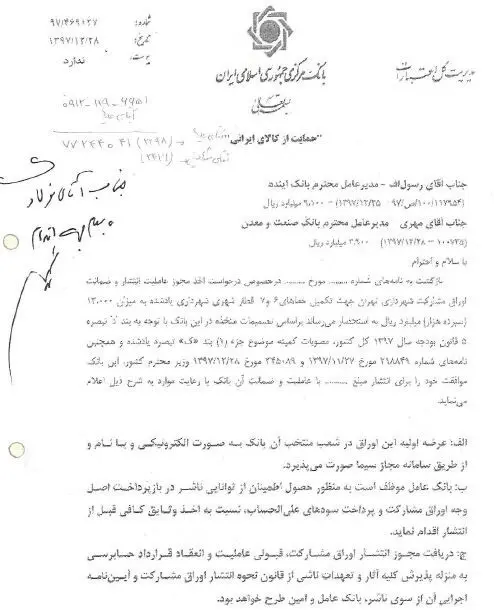 شماره: ۹۷/۴۶۹۱۲۷
تاریخ: ۱۳۹۷/۱۲/۲۸
پیوست: ندارد
مدیریت کل اعتبارات
بانک مرکزی جمهوری اسلامی ایران
بسمه تعالی
"حمایت از کالای ایرانی"
جناب آقای
جناب آقای رسول‌اف - مدیرعامل محترم بانک آینده
(۱۰۰/۱۱۷۹۵۴/ص/۹۷- ۱۳۹۷/۱۲/۲۵) - ۹،۱۰۰ میلیارد ریال
جناب آقای مهری - مدیرعامل محترم بانک صنعت و معدن
(۱۰۰۷۳۵ - ۱۳۹۷/۱۲/۲۸) ۳،۹۰۰ میلیارد ریال
با سلام و احترام
بازگشت به نامه‌های شماره .......... مورخ .......... درخصوص درخواست اخذ مجوز عاملیت انتشار و ضمانت
اوراق مشارکت شهرداری تهران جهت تکمیل خط‌های ۶ و ۷ قطار شهری شهرداری یادشده به میزان ۱۳،۰۰۰
(سیزده هزار) میلیارد ریال به استحضار می‌رساند براساس تصمیمات متخذه در این بانک با توجه به بند "د" تبصره
۵ قانون بودجه سال ۱۳۹۷ کل کشور، مصوبات کمیته موضوع جزء (۱) بند «ک» تبصره یادشده و همچنین
نامه‌های شماره ۲۱۸۸۴۹ مورخ ۱۳۹۷/۱۱/۲۷ و ۲۴۵۰۸۹ مورخ ۱۳۹۷/۱۲/۲۸ وزیر محترم کشور، این بانک
موافقت خود را برای انتشار مبلغ .......... با عاملیت و ضمانت آن بانک با رعایت موارد به شرح ذیل اعلام
می‌نماید.
الف: عرضه اولیه این اوراق در شعب منتخب آن بانک به صورت الکترونیکی و با نام و
از طریق سامانه مجاز سیما صورت می‌پذیرد.
ب: بانک عامل موظف است به منظور حصول اطمینان از توانایی ناشر در بازپرداخت اصل
وجه اوراق مشارکت و پرداخت سودهای علی‌الحساب، نسبت به اخذ وثایق کافی قبل از
انتشار اقدام نماید.
ج: دریافت مجوز انتشار اوراق مشارکت، قبولی عاملیت و انعقاد قرارداد حسابرسی
به منزله پذیرش کلیه آثار و تعهدات ناشی از قانون نحوه انتشار اوراق مشارکت و آیین‌نامه
اجرایی آن از سوی ناشر، بانک عامل و امین طرح خواهد بود.